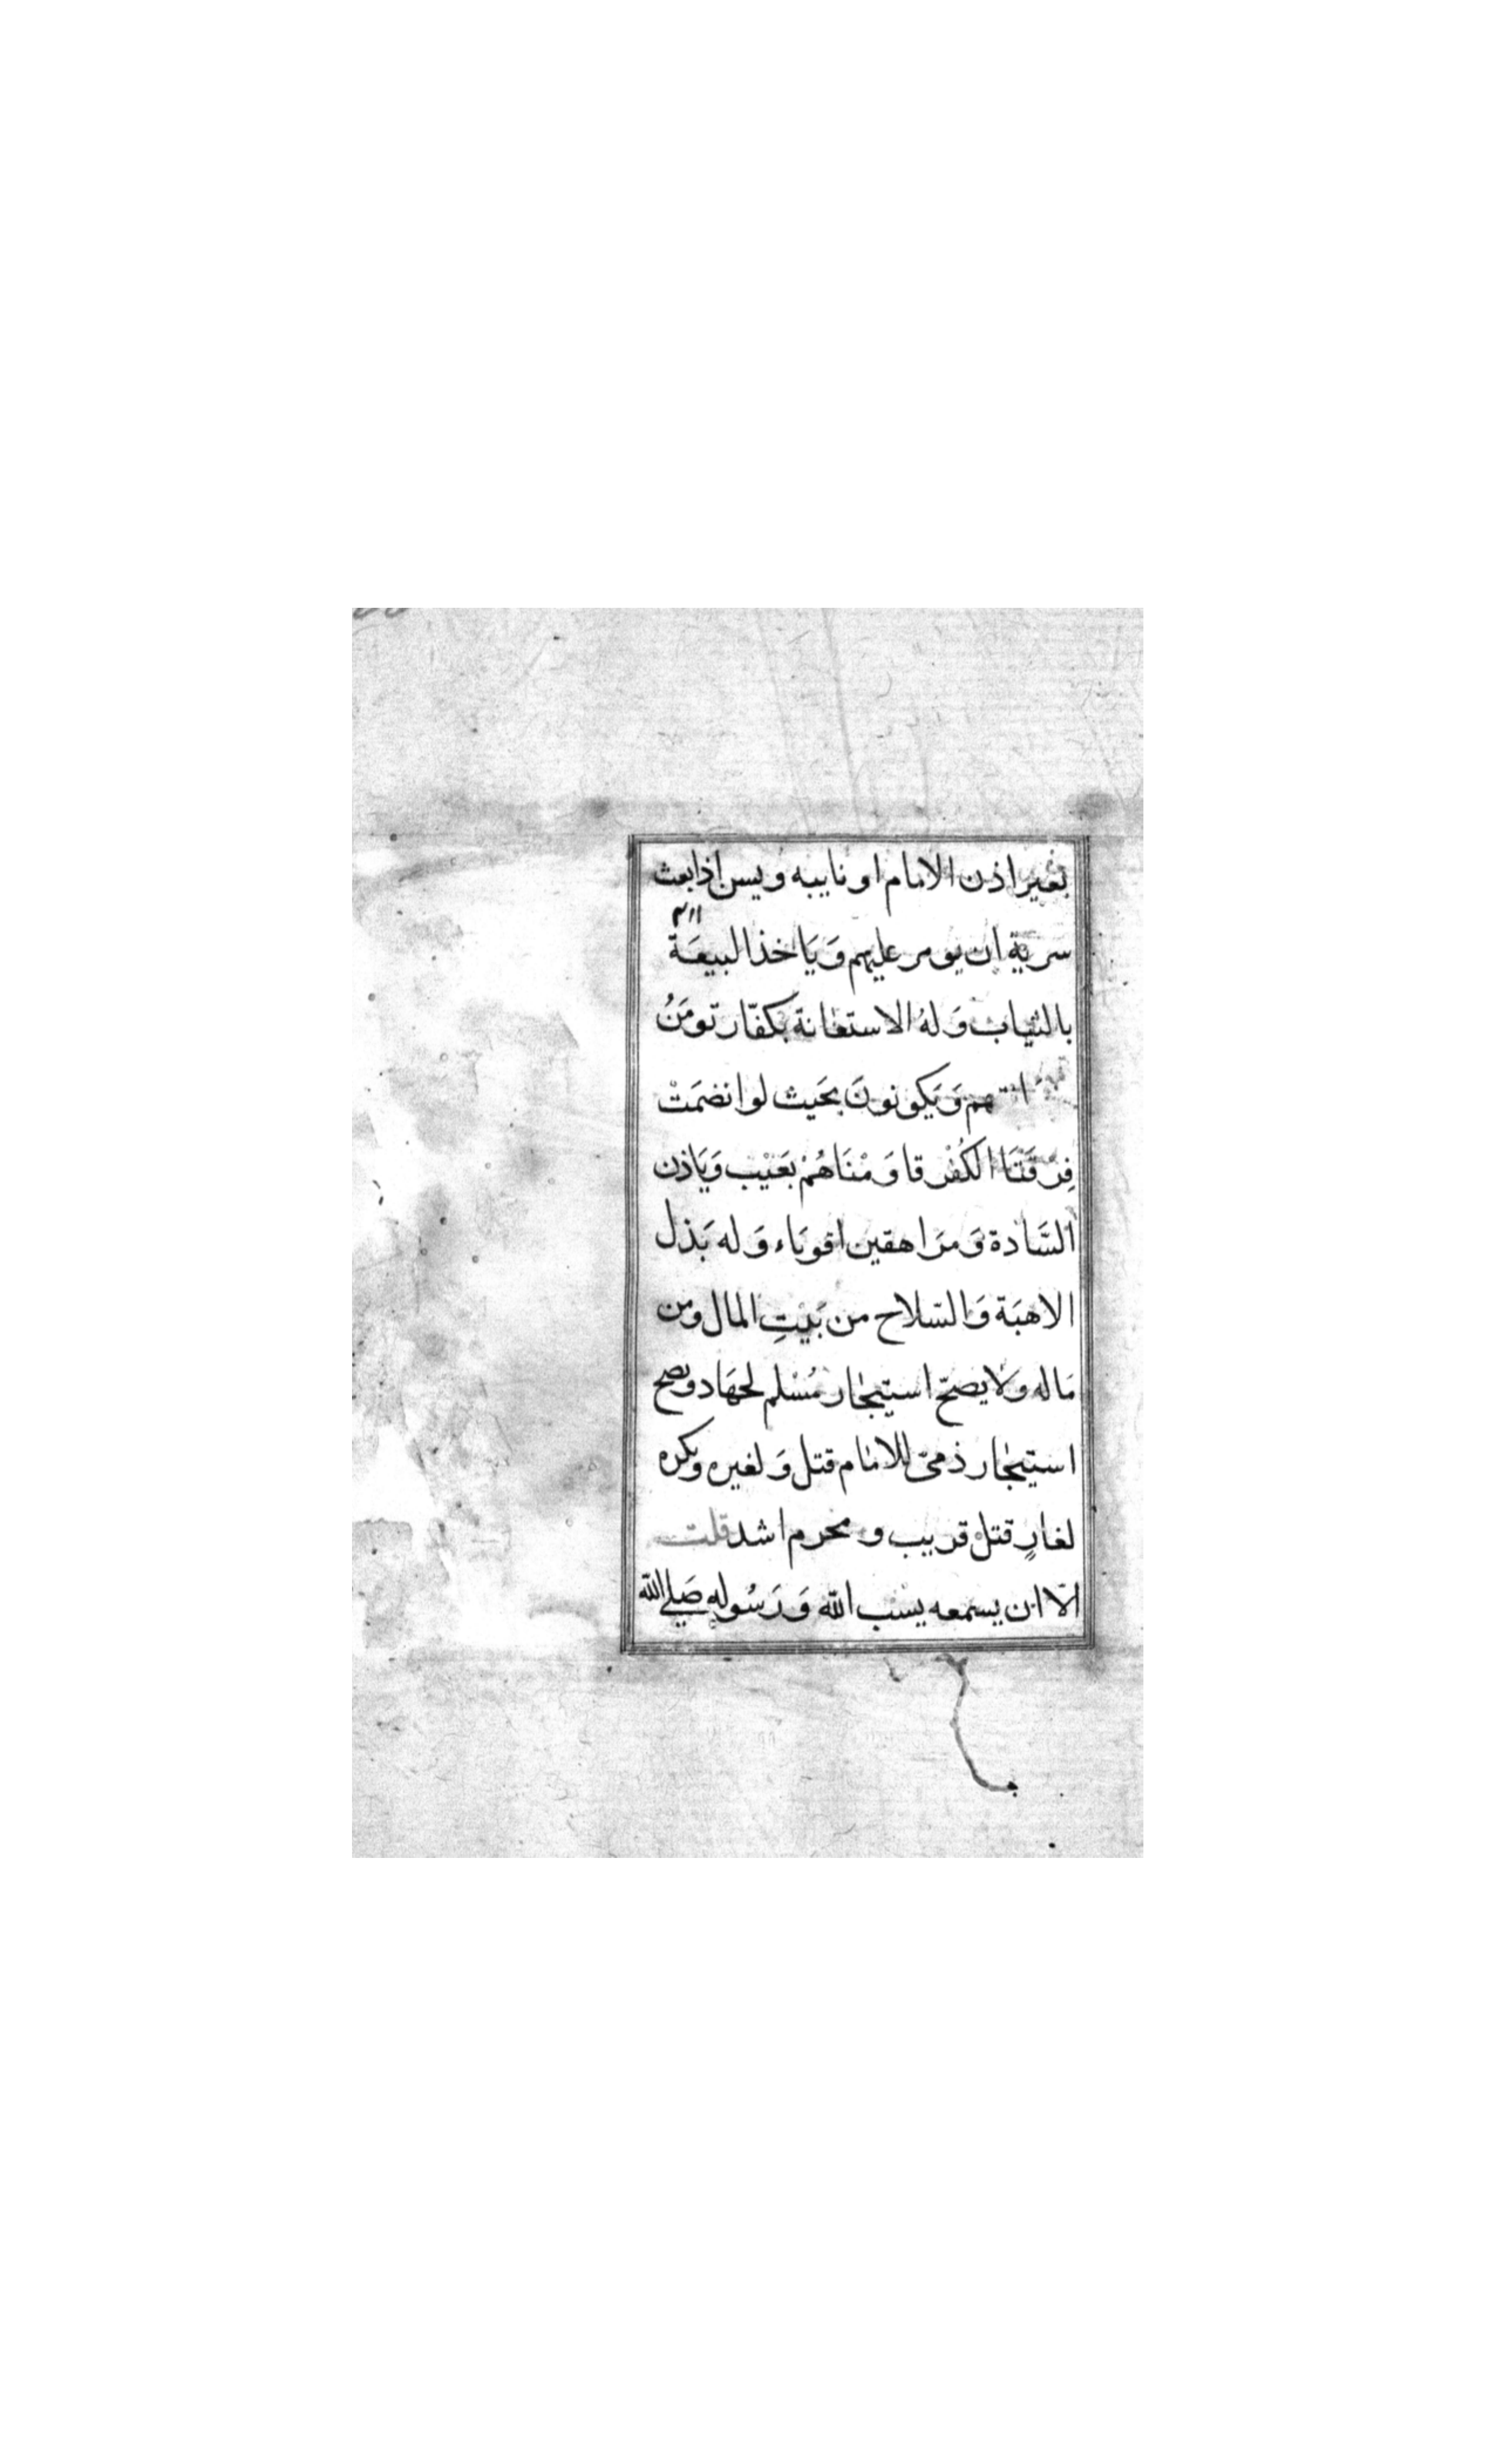 بغير اذن الامام او نايبه ويسن اذا بعث
سرية ان يومر عليهم وَيَاخذ البيعَة
بالثياب وَلهُ الاستعانة بكفّار تومَنُ
وَيَكونونَ بحَيث لو انضمَتْ
فِرقَتَا الكُفْر قاوَمْنَاهُمْ بعَيْب وَيَاذن
السَّادة وَمرَاهقين اقويَاء وَله بَذل
الاهبَة وَالسّلاح من بَيْتِ المال ومن
مَاله ولا يصحّ استيجار مُسْلم لجهَاد ويصح
استيجار ذمىّ للامام قتل وَلغيره ويكره
لغارٍ قتل قريب ومحرم اشد قلت
الّا ان يسمعه يسْب الله وَرَسُوله صَلى الله